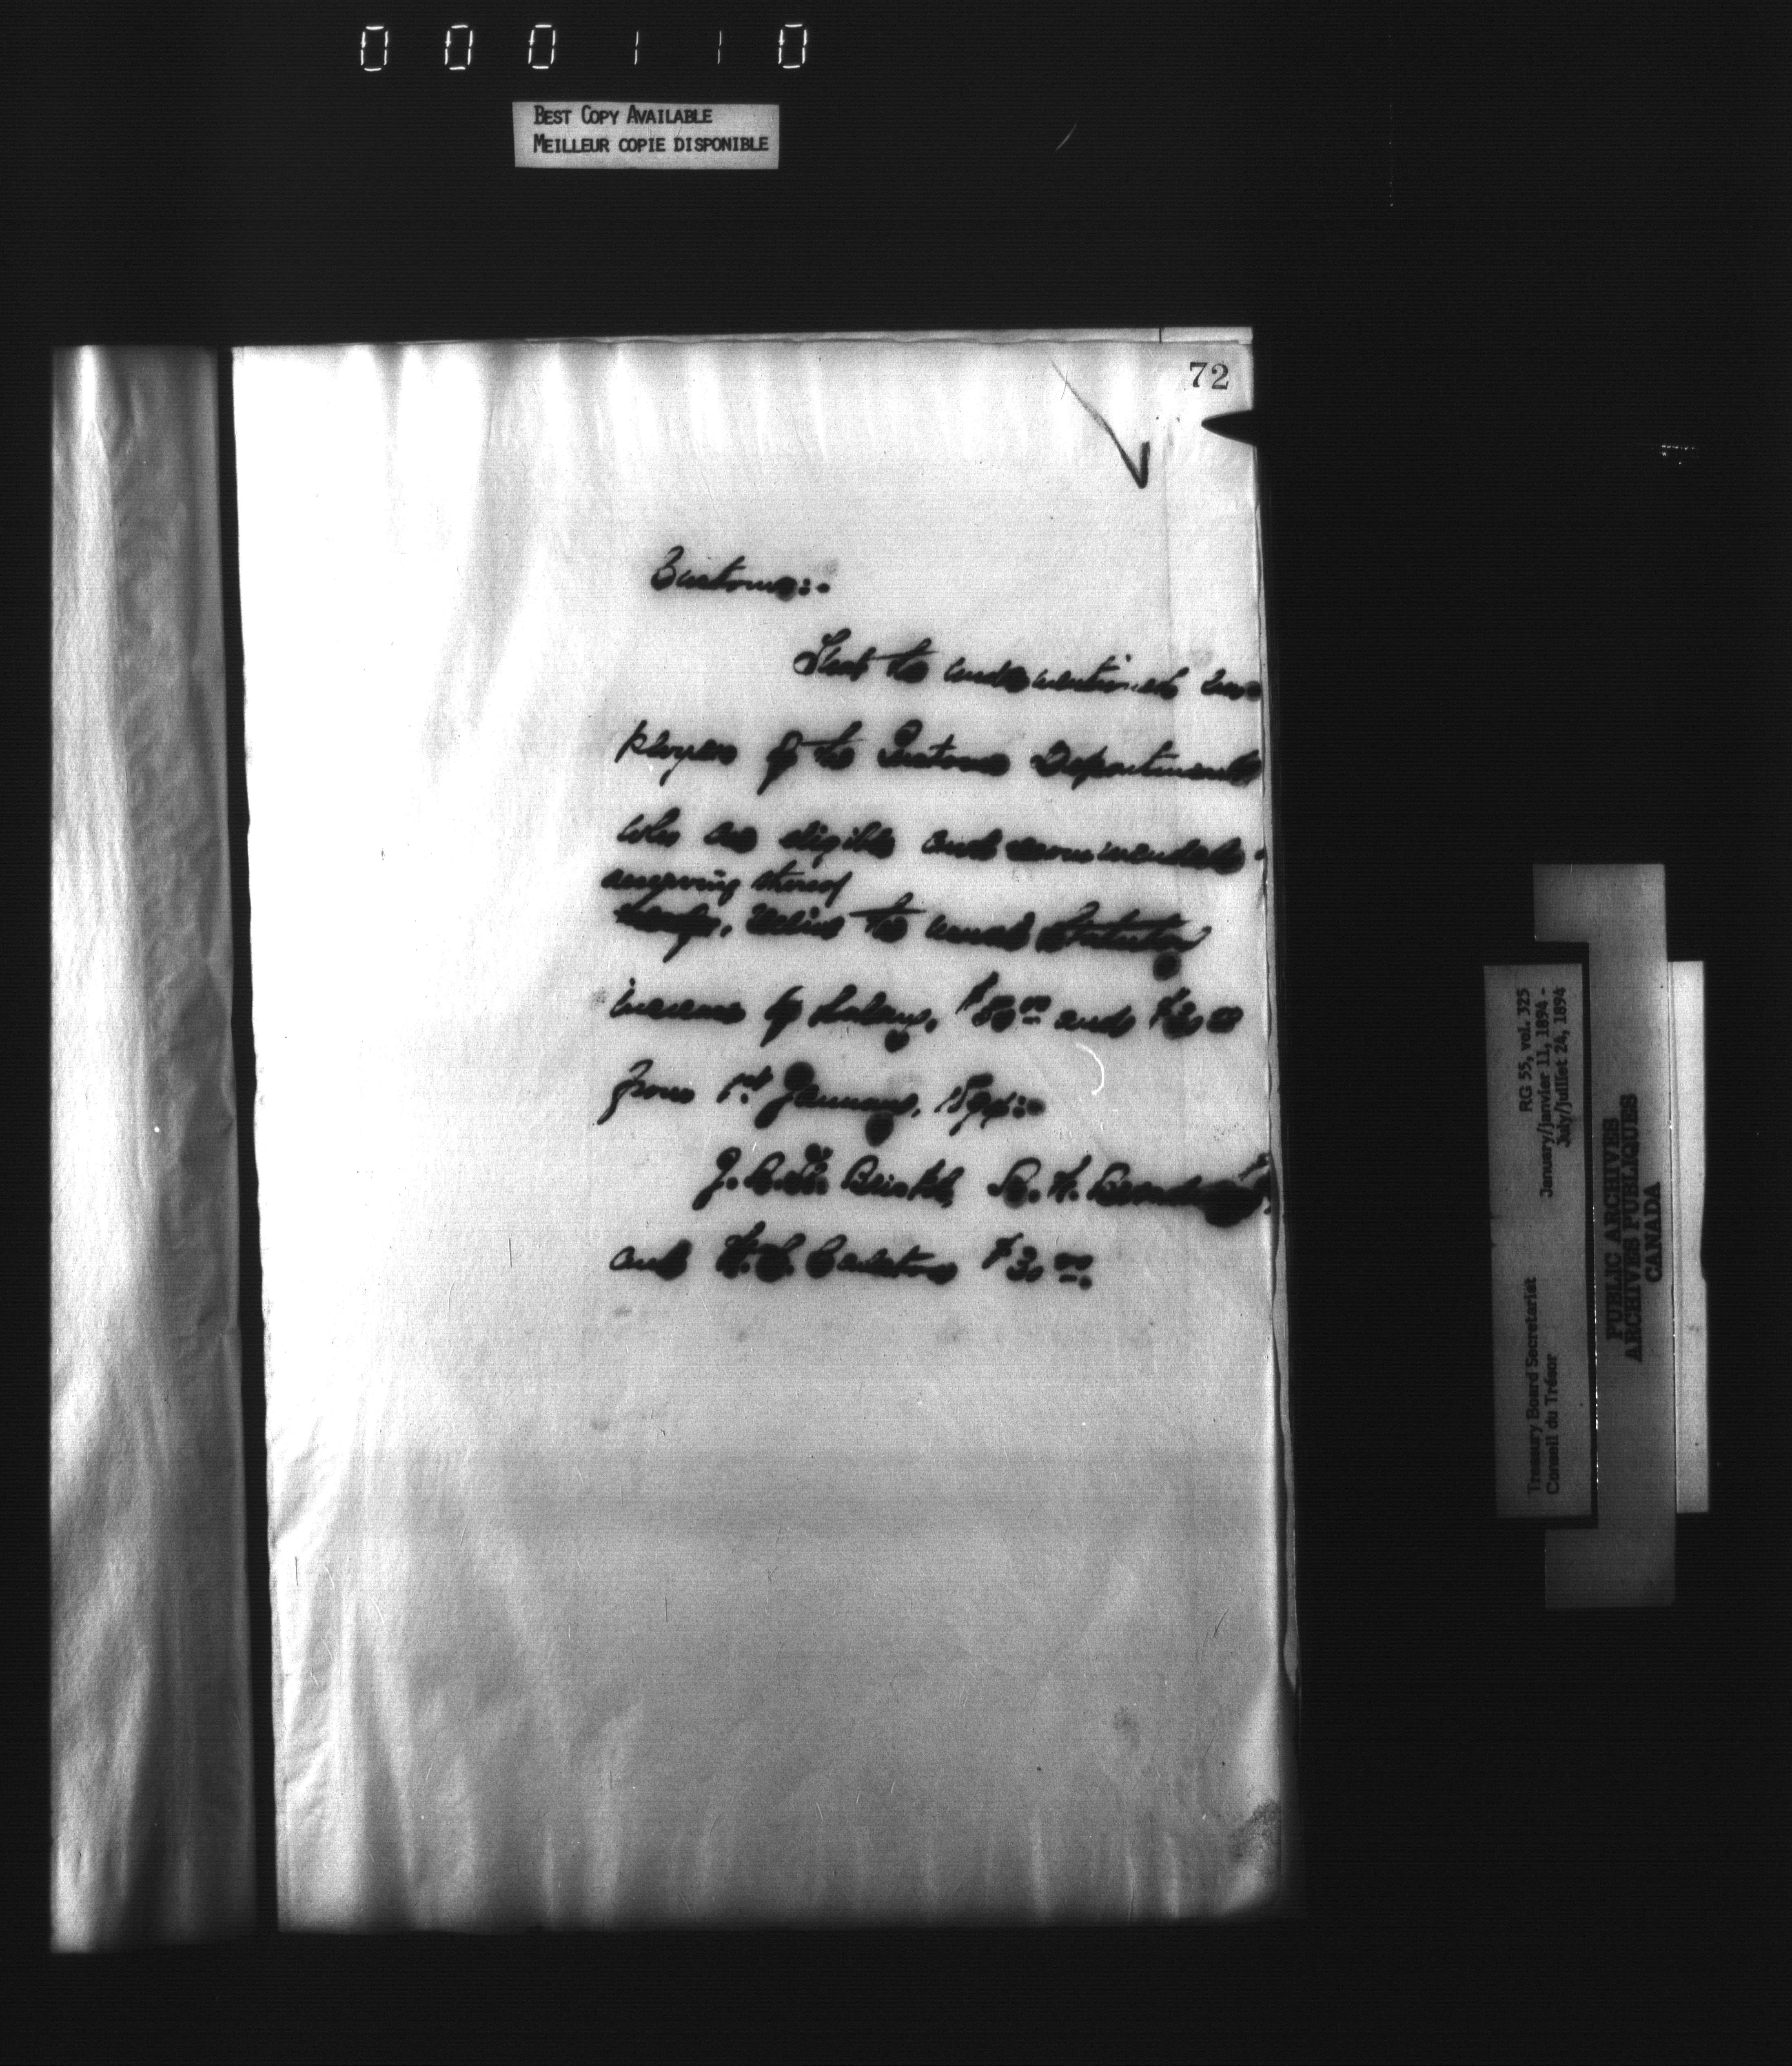 0 0 0 1 1 0
BEST COPY AVAILABLE
MEILLEUR COPIE DISPONIBLE
72
Customs:-
That the undermentioned em-
ployees of the Customs Department
who are eligible and recommended
deserving thereof
the usual Statutory
increase of Salary, $50 00 and $30 00
from 1st January, 1894:-
J. and
and Carleton $30 00.
Treasury Board Secretariat RG 55, vol. 325
Conseil du Trésor January/janvier 11, 1894 -
July/juillet 24, 1894
PUBLIC ARCHIVES
ARCHIVES PUBLIQUES
CANADA